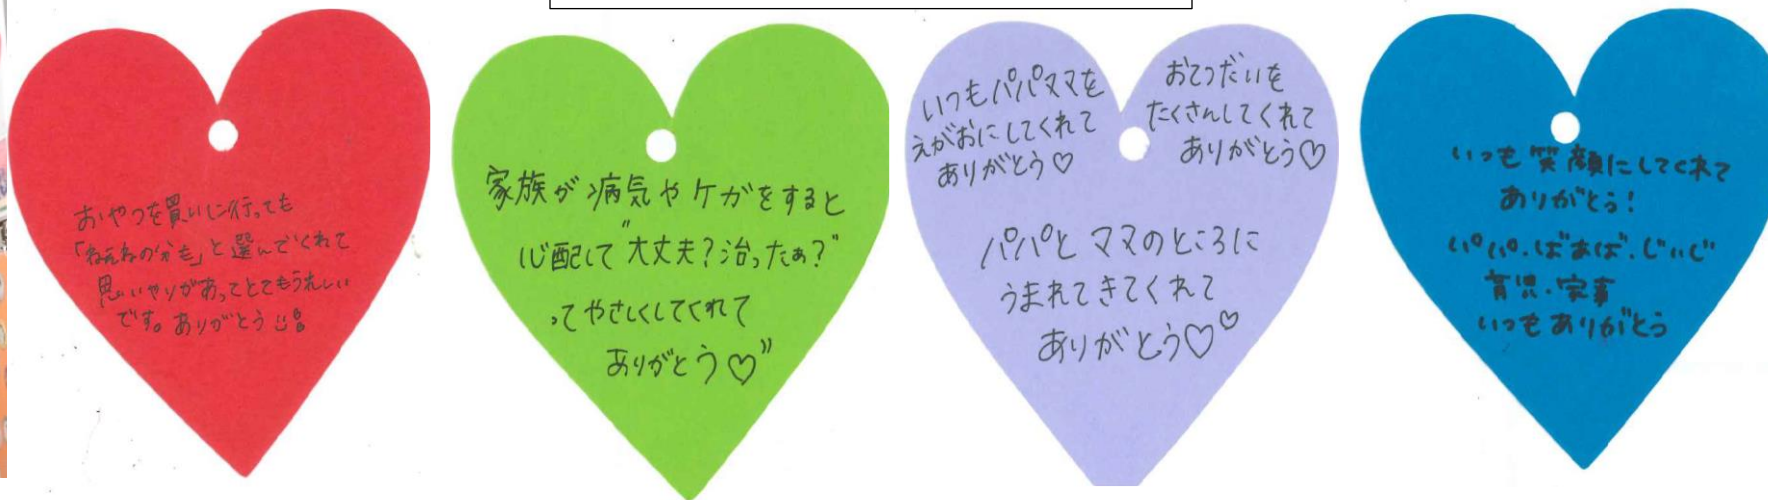 おやつを買いに行っても
「ねえねの分も」と選んでくれて
思いやりがあってとてもうれしい
です。ありがとう
家族が病気やケガをすると
心配して"大丈夫?治ったぁ?"
ってやさしくしてくれて
ありがとう♡"
いつもパパママを
えがおにしてくれて
ありがとう♡
おてつだいを
たくさんしてくれて
ありがとう♡
パパとママのところに
うまれてきてくれて
ありがとう♡♡
いつも笑顔にしてくれて
ありがとう!
パパ.ばあば.じいじ
育児.家事
いつもありがとう